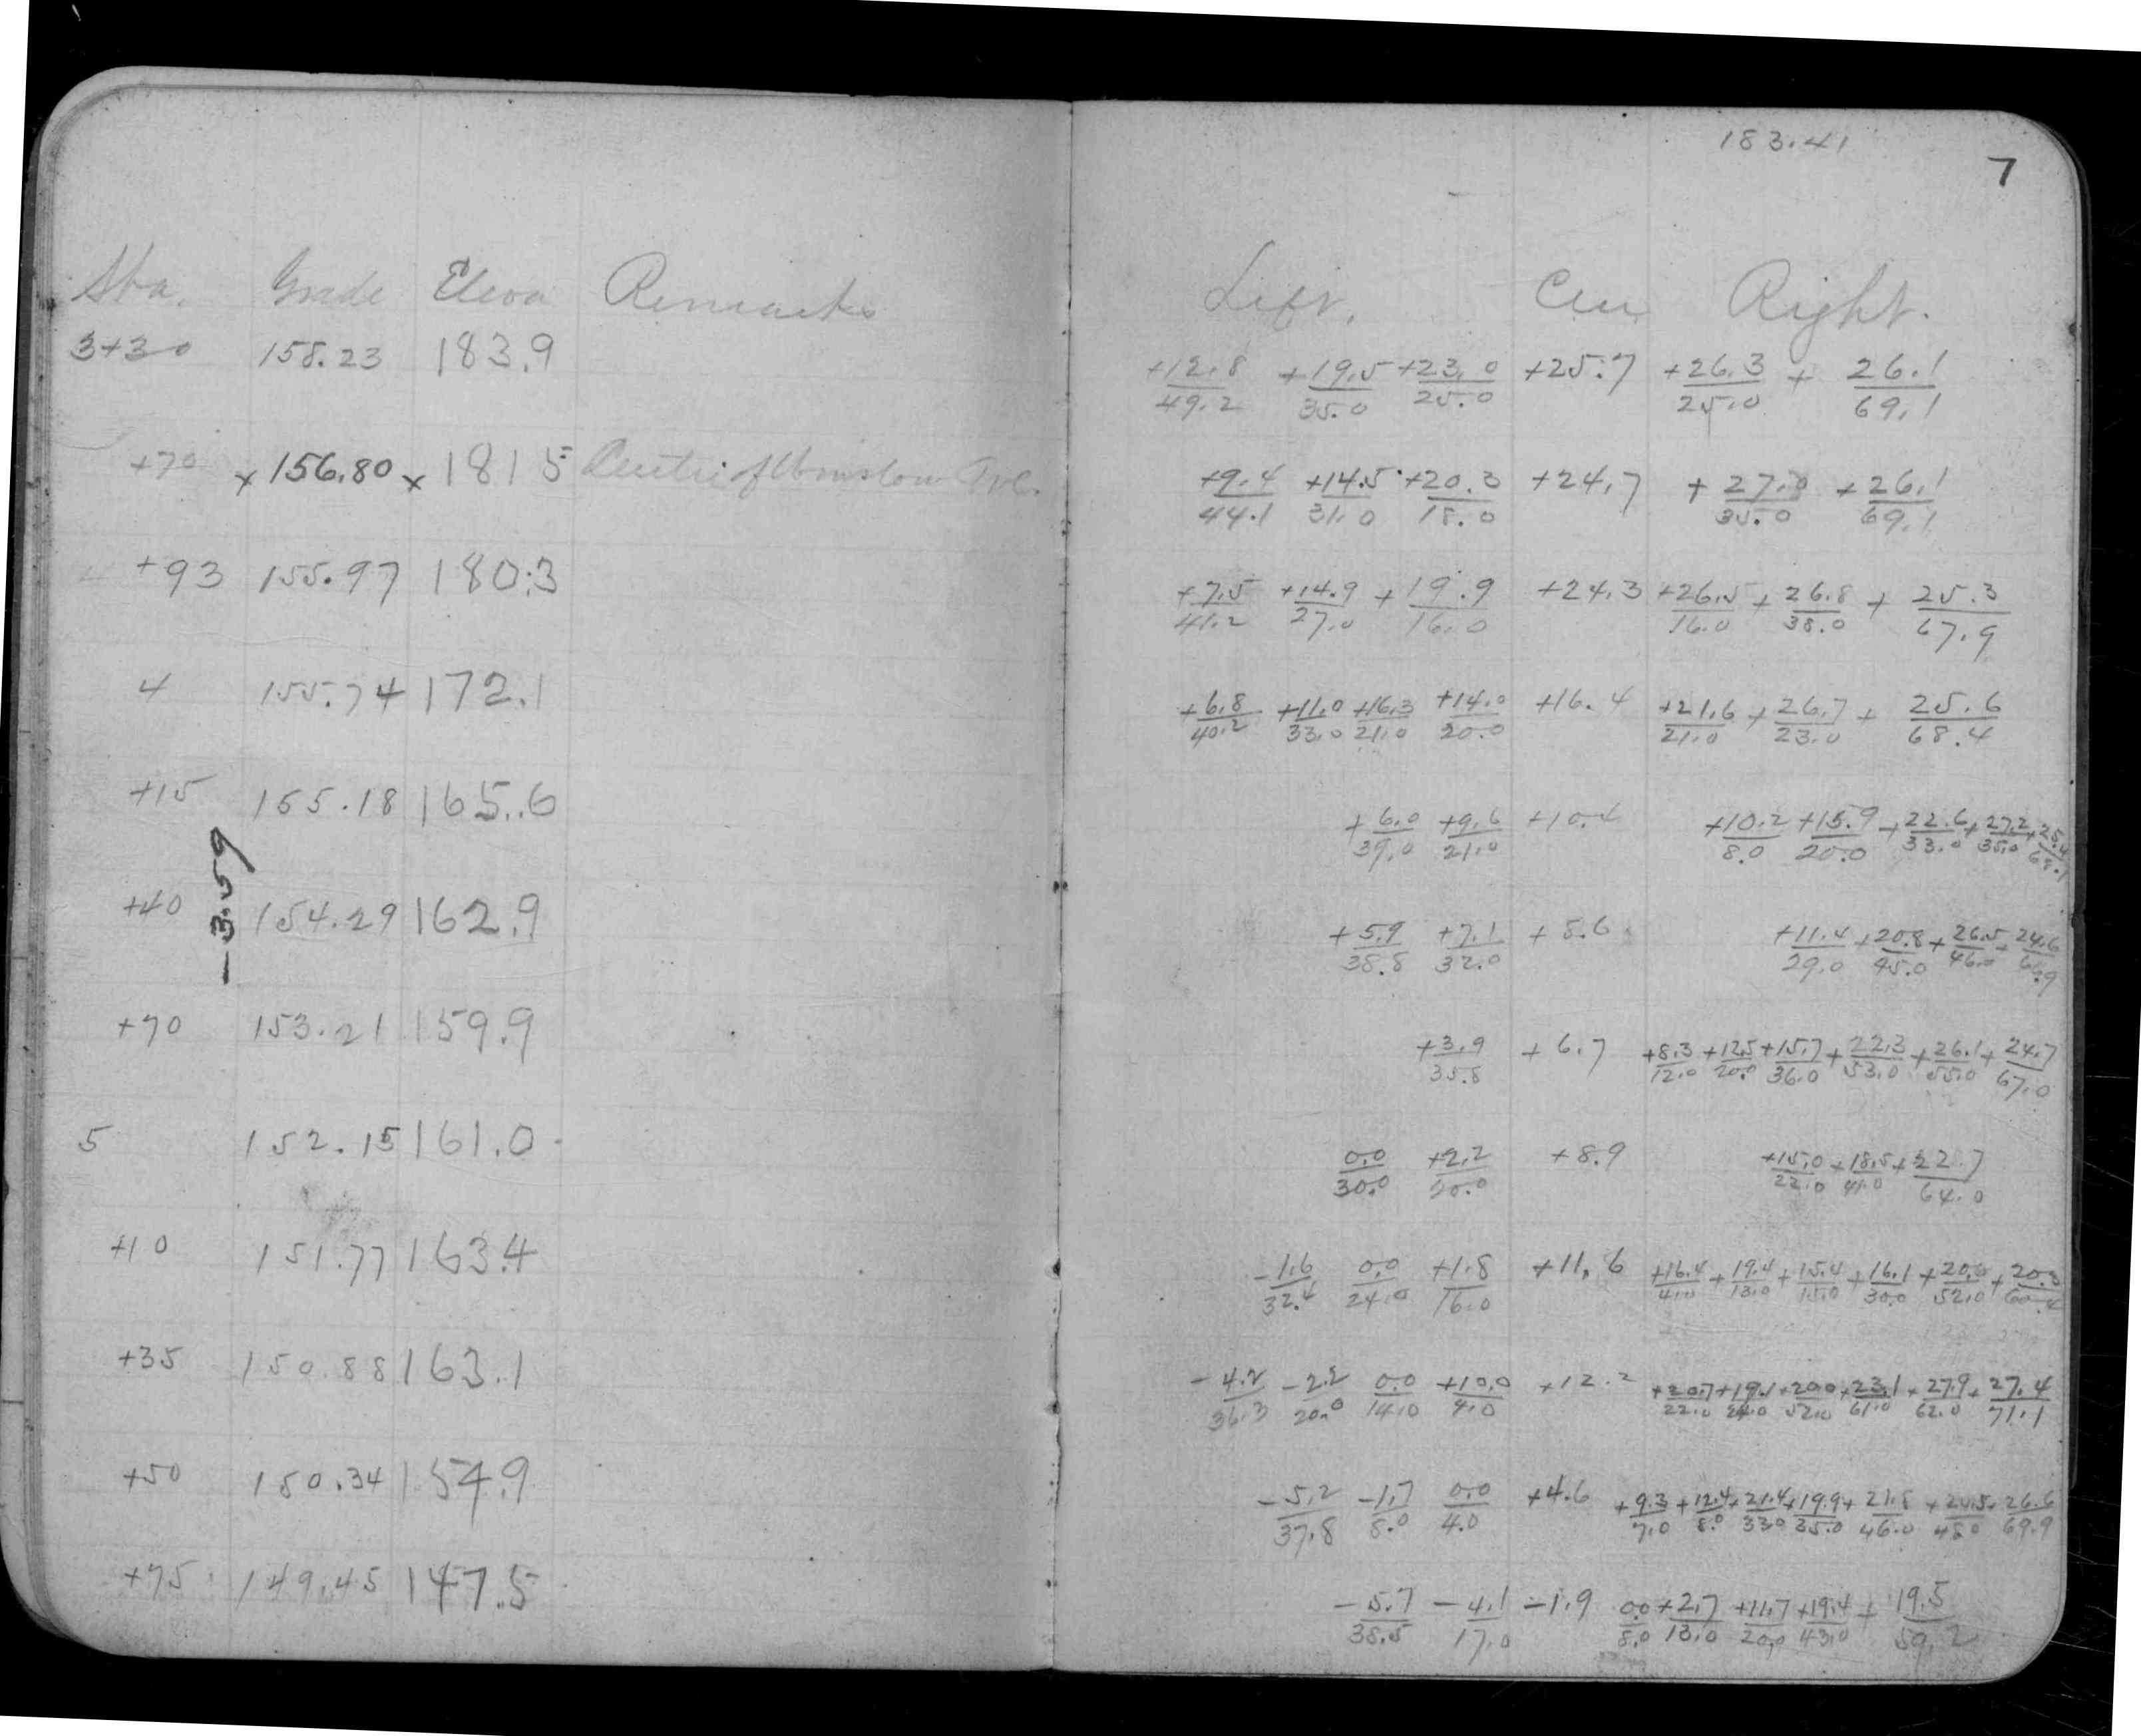 183.41
7
Sta. Grade Eleva Remarks Left. Cen Right.
3+30 158.23 183.9 +12.8/49.2 +19.5/35.0 +23.0/25.0 +25.7 +26.3/25.0 + 26.1/69.1
+70 x 156.80 x 181.5 +9.4/44.1 +14.5/31.0 +20.3/18.0 +24.7 + 27.0/35.0 +26.1/69.1
+93 155.97 180.3 +7.5/41.2 +14.9/27.0 + 19.9/16.0 +24.3 +26.5/16.0 + 26.8/38.0 + 25.3/67.9
4 155.74 172.1 +6.8/40.2 +11.0/33.0 +16.3/21.0 +14.0/20.0 +16.4 +21.6/21.0 + 26.7/23.0 + 25.6/68.4
+15 155.18 165.6 + 6.0/39.0 +9.6/21.0 +10.4 +10.2/8.0 +15.9/20.0 + 22.6/33.0 + 27.2/35.0 + 25.4/68.1
-3.59
+40 154.29 162.9 + 5.9/38.8 +7.1/32.0 + 8.6 +11.4/29.0 +20.8/45.0 + 26.5/46.0 + 24.6/66.9
+70 153.21 159.9 +3.9/35.8 + 6.7 +8.3/12.0 +12.5/20.0 +15.7/36.0 + 22.3/53.0 + 26.1/55.0 + 24.7/67.0
5 152.15 161.0 0.0/30.0 +2.2/20.0 +8.9 +15.0/22.0 + 18.5/41.0 + 22.7/64.0
+10 151.77 163.4 -1.6/32.4 0.0/24.0 +1.8/16.0 +11.6 +16.4/4.0 + 19.4/13.0 + 15.4/15.0 + 16.1/30.0 + 20.6/52.0 + 20.3/60.4
+35 150.88 163.1 -4.2/36.3 -2.2/20.0 0.0/14.0 +10.0/4.0 +12.2 +20.7/22.0 +19.1/24.0 +20.0/52.0 + 23.1/61.0 + 27.9/62.0 + 27.4/71.1
+50 150.34 154.9 -5.2/37.8 -1.7/8.0 0.0/4.0 +4.6 + 9.3/7.0 + 12.4/8.0 + 21.4/33.0 + 19.9/35.0 + 21.8/46.0 + 26.6/69.9
+75 149.45 147.5 -5.7/38.5 -4.1/17.0 -1.9 0.0/8.0 +2.7/13.0 +11.7/20.0 +19.4/43.0 + 19.5/59.2